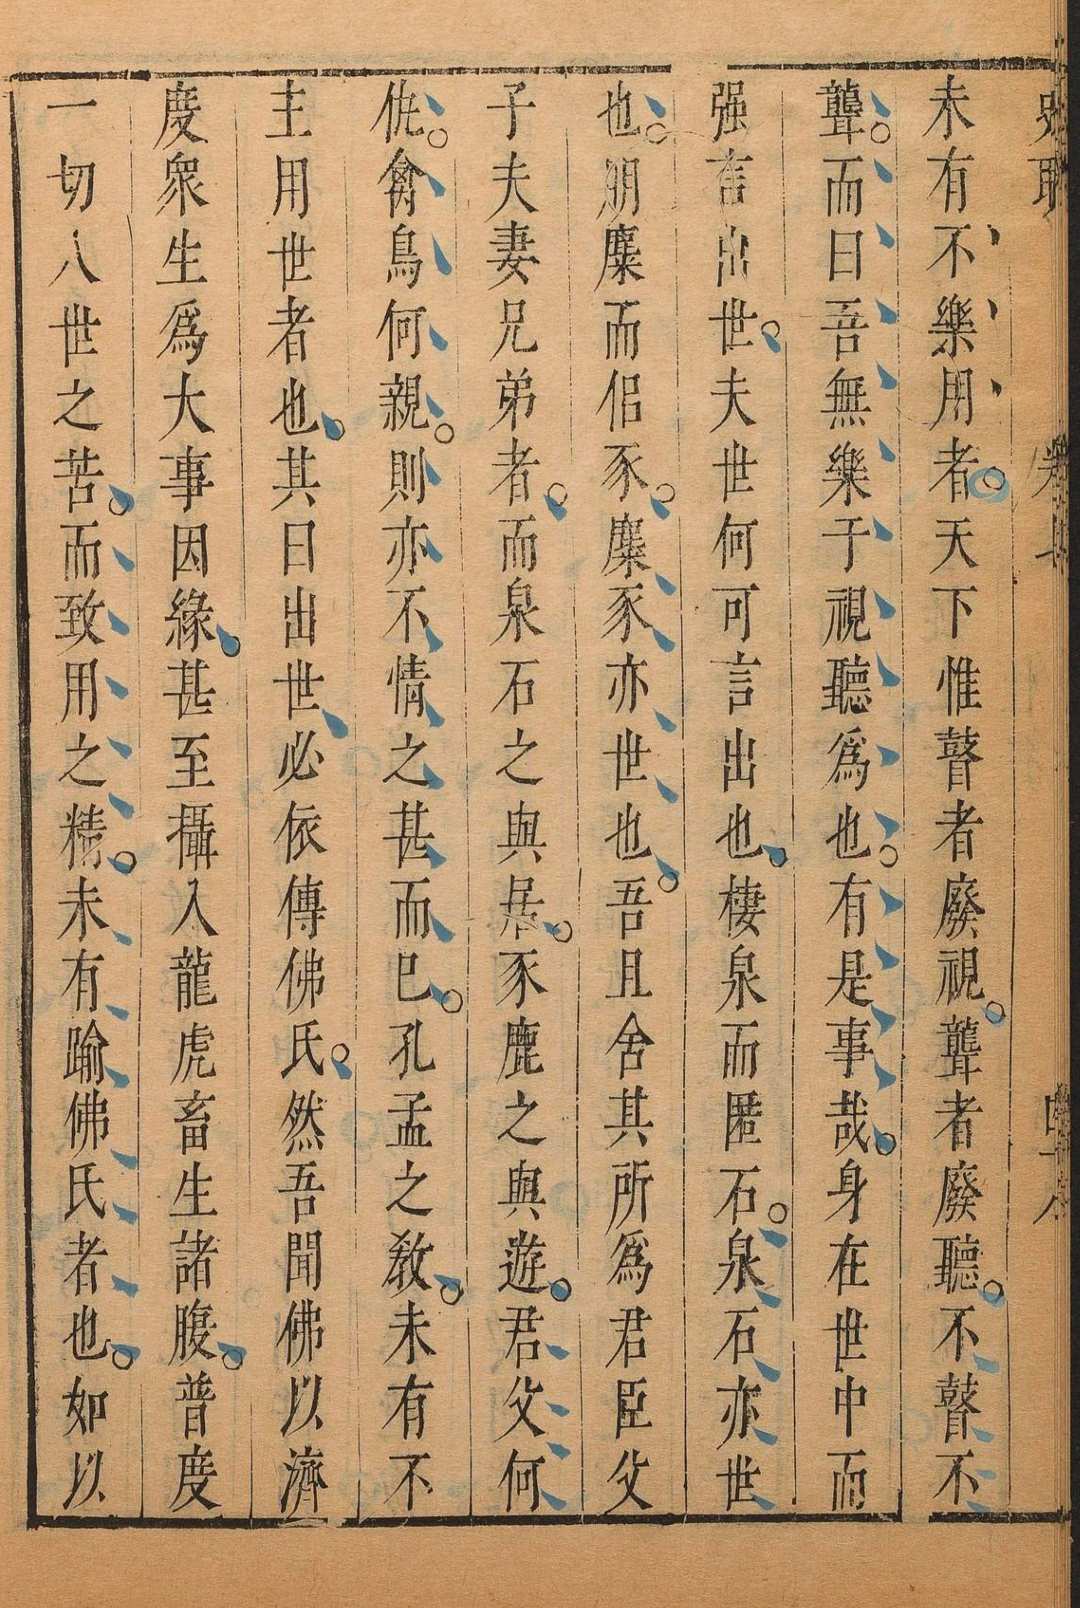 未有不樂用者天下惟瞽者廢視聾者廢聽不瞽不
聾而曰吾無樂于視聽爲也有是事哉身在世中而
强言出世夫世何可言出也棲泉而匿石泉石亦世
也朋麋而侣豕麋豕亦世也吾且舍其所爲君臣父
子夫妻兄弟者而泉石之與居豕鹿之與遊君父何
仇禽鳥何親則亦不情之甚而已孔孟之教未有不
主用世者也其曰出世必依傳佛氏然吾聞佛以濟
度衆生爲大事因緣甚至攝入龍虎畜生諸腹普度
一切八世之苦而致用之精未有踰佛氏者也如以